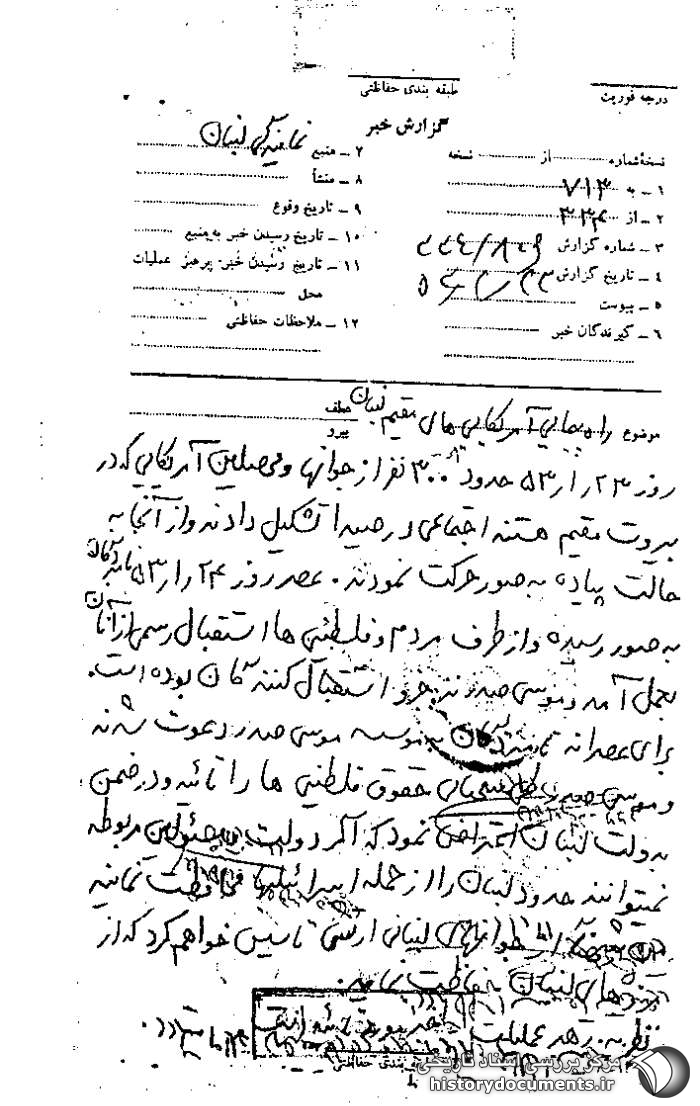 درجه فوریت
طبقه بندی حفاظتی
گزارش خبر
نسخهٔ شماره از نسخه
۱ ـ به ۷۱۳
۲ ـ از ۳۳۴
۳ ـ شماره گزارش
۴ ـ تاریخ گزارش
۵ ـ پیوست
۶ ـ گیرندگان خبر
۷ ـ منبع نمایندگی لبنان
۸ ـ منشأ
۹ ـ تاریخ وقوع
۱۰ ـ تاریخ رسیدن خبر به منبع
۱۱ ـ تاریخ رسیدن خبر به رهبر عملیات
محل
۱۲ ـ ملاحظات حفاظتی
موضوع راه‌پیمایی آمریکایی های مقیم لبنان
عطف
پیرو
روز ۲۳ ر۱ر۵۳ حدود ۳۰۰ نفر از جوانها و محصلین آمریکایی که در
بیروت مقیم هستند اجتماعی در صیدا تشکیل دادند و از آنجا به
حالت پیاده به صور حرکت نمودند. عصر روز ۲۴ ر۱ر۵۳
به صور رسیده و از طرف مردم و فلسطینی ها استقبال رسمی از آنان
بعمل آمد و موسی صدر نیز جزو استقبال کنندگان بوده است.
برای عصرانه به موسسه موسی صدر دعوت شدند
و موسی صدر حقوق فلسطینی ها را تائید و در ضمن
به دولت لبنان اعتراض نمود که اگر دولت و مسئولین مربوطه
نمیتوانند حدود لبنان را از حمله اسرائیلیها محافظت نمایند
لبنانی ارتشی تاسیس خواهم کرد که از
مرزهای لبنان حفاظت نمایند.
نظریه رهبر عملیات خبر مورد تائید است
طبقه بندی حفاظتی
مرکز بررسی اسناد تاریخی
historydocuments.ir